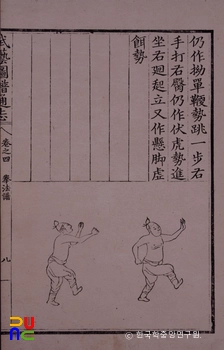 仍作拗單鞭勢跳一步右
手打右臀仍作伏虎勢進
坐右廻起立又作懸脚虛
餌勢
武藝圖譜通志
卷之四 拳法譜
八
© 한국학중앙연구원